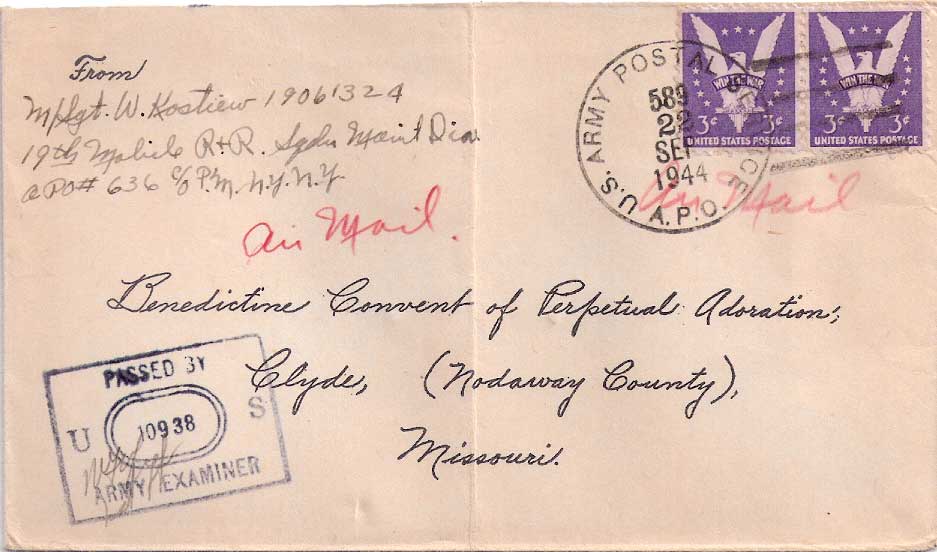 From
M/Sgt. W. Kostiew 19061324
19th Mobile R+R. Sqdn Maint Div.
APO# 636 c/o P.M. N.Y. N.Y.
Air Mail.
U.S. ARMY POSTAL SERVICE
A.P.O.
589
22
SEP
1944
WIN THE WAR
3¢ 3¢
UNITED STATES POSTAGE
WIN THE WAR
3¢ 3¢
UNITED STATES POSTAGE
Air Mail
Benedictine Convent of Perpetual Adoration;
Clyde, (Nodaway County),
Missouri.
PASSED BY
U S
10938
ARMY EXAMINER